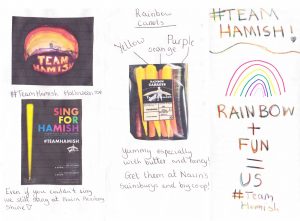 TEAM
HAMISH
#Team Hamish Halloween
SING
FOR
HAMISH
#TEAMHAMISH
Even if you couldn't sing
we still stay at Nairn
Rainbow
Carrots
Yellow
Purple
orange
RAINBOW
CARROTS
yummy especially
with butter and honey!
Get them at Nairn's
Sainsburys and big coop!
#TEAM
HAMISH!
RAINBOW
+
FUN
=
US
#Team
Hamish